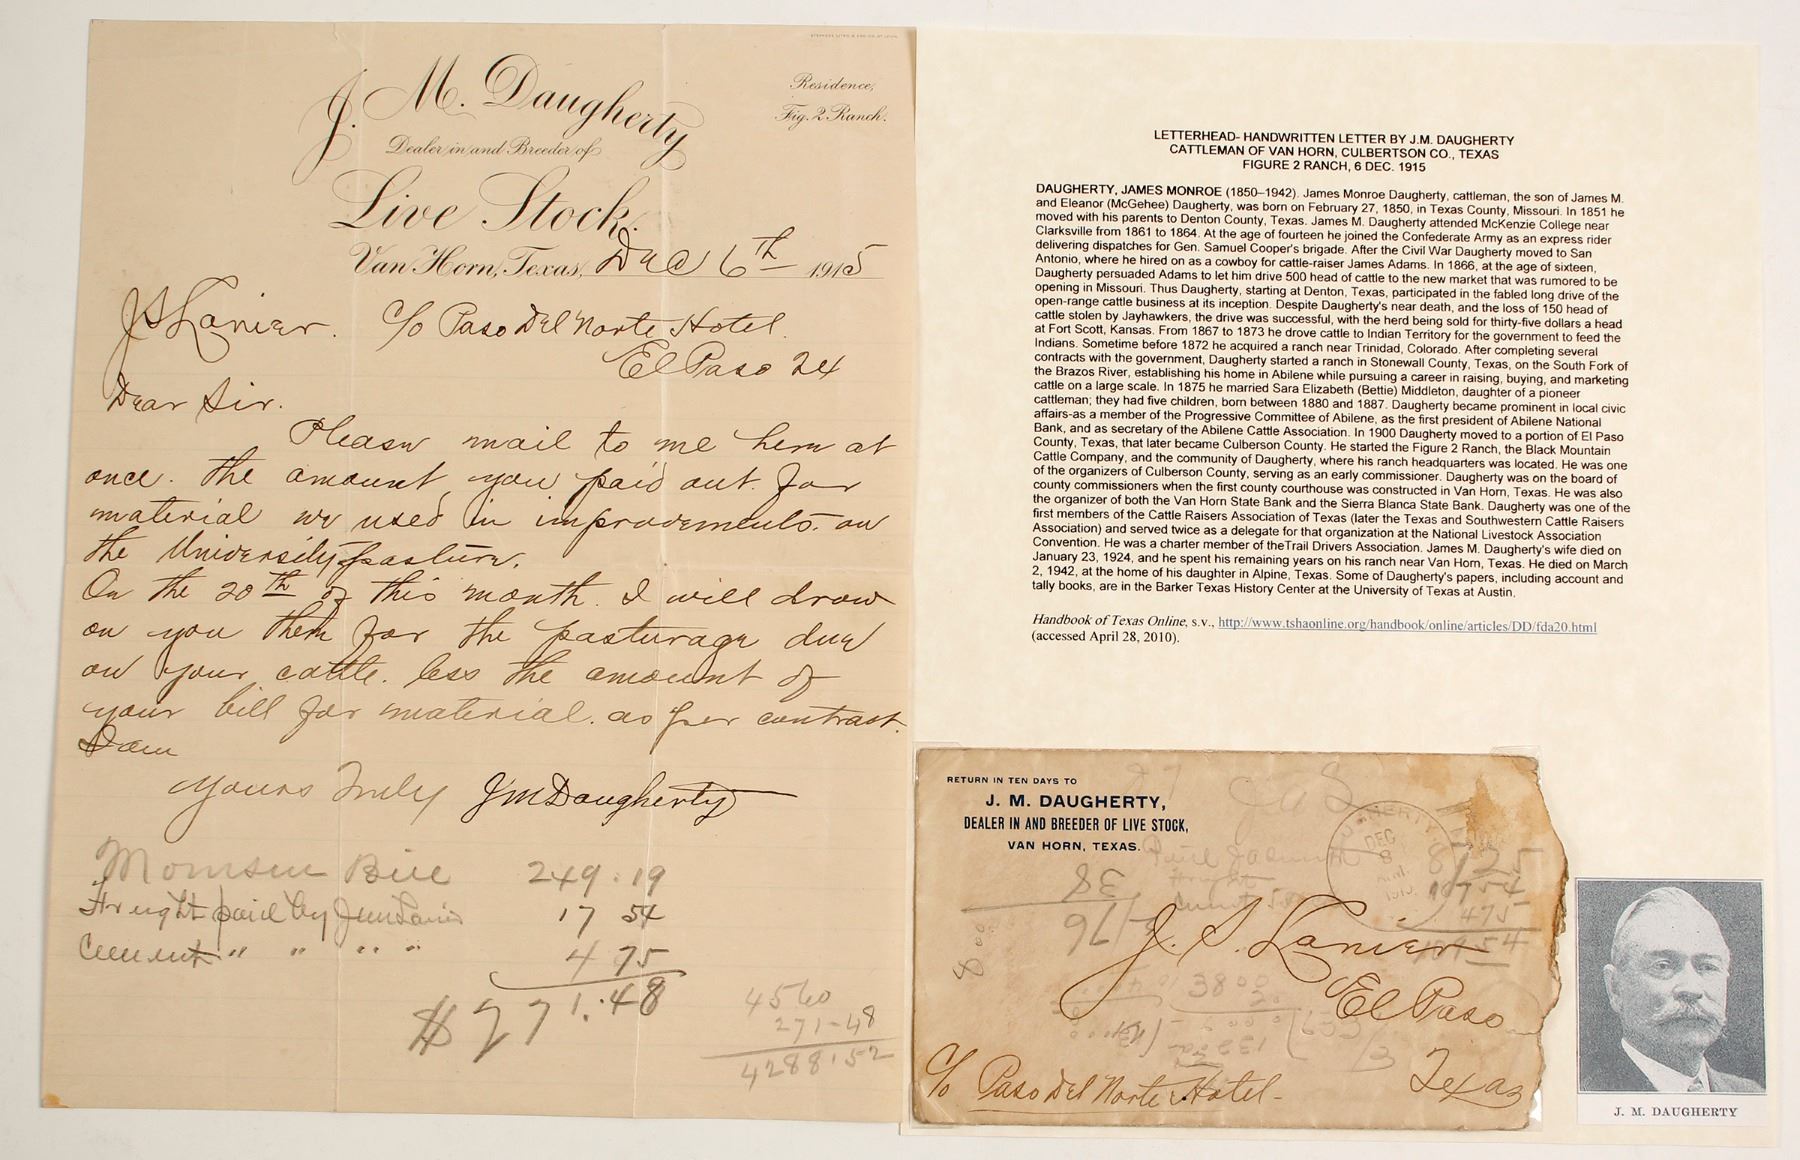 J. M. Daugherty
Residence,
Fig. 2 Ranch.
Dealer in and Breeder of
Live Stock.
Van Horn, Texas, Dec 6th 1915
J S Lanier. C/o Paso Del Norte Hotel
El Paso Tex
Dear Sir.
Please mail to me here at
once. the amount you paid out for
material we used in improvements. on
the University pasture.
On the 20th of this month. I will draw
on you then for the pasturage due
on your cattle. less the amount of
your bill for material. as per contract.
I am
Yours Truly JM Daugherty
Momsen Bill 249.19
Freight paid by 17 54
Cement " " " " 4 75
$271.48
4560
271-48
4288.52
LETTERHEAD- HANDWRITTEN LETTER BY J.M. DAUGHERTY
CATTLEMAN OF VAN HORN, CULBERTSON CO., TEXAS
FIGURE 2 RANCH, 6 DEC. 1915
DAUGHERTY, JAMES MONROE (1850–1942). James Monroe Daugherty, cattleman, the son of James M.
and Eleanor (McGehee) Daugherty, was born on February 27, 1850, in Texas County, Missouri. In 1851 he
moved with his parents to Denton County, Texas. James M. Daugherty attended McKenzie College near
Clarksville from 1861 to 1864. At the age of fourteen he joined the Confederate Army as an express rider
delivering dispatches for Gen. Samuel Cooper's brigade. After the Civil War Daugherty moved to San
Antonio, where he hired on as a cowboy for cattle-raiser James Adams. In 1866, at the age of sixteen,
Daugherty persuaded Adams to let him drive 500 head of cattle to the new market that was rumored to be
opening in Missouri. Thus Daugherty, starting at Denton, Texas, participated in the fabled long drive of the
open-range cattle business at its inception. Despite Daugherty's near death, and the loss of 150 head of
cattle stolen by Jayhawkers, the drive was successful, with the herd being sold for thirty-five dollars a head
at Fort Scott, Kansas. From 1867 to 1873 he drove cattle to Indian Territory for the government to feed the
Indians. Sometime before 1872 he acquired a ranch near Trinidad, Colorado. After completing several
contracts with the government, Daugherty started a ranch in Stonewall County, Texas, on the South Fork of
the Brazos River, establishing his home in Abilene while pursuing a career in raising, buying, and marketing
cattle on a large scale. In 1875 he married Sara Elizabeth (Bettie) Middleton, daughter of a pioneer
cattleman; they had five children, born between 1880 and 1887. Daugherty became prominent in local civic
affairs-as a member of the Progressive Committee of Abilene, as the first president of Abilene National
Bank, and as secretary of the Abilene Cattle Association. In 1900 Daugherty moved to a portion of El Paso
County, Texas, that later became Culberson County. He started the Figure 2 Ranch, the Black Mountain
Cattle Company, and the community of Daugherty, where his ranch headquarters was located. He was one
of the organizers of Culberson County, serving as an early commissioner. Daugherty was on the board of
county commissioners when the first county courthouse was constructed in Van Horn, Texas. He was also
the organizer of both the Van Horn State Bank and the Sierra Blanca State Bank. Daugherty was one of the
first members of the Cattle Raisers Association of Texas (later the Texas and Southwestern Cattle Raisers
Association) and served twice as a delegate for that organization at the National Livestock Association
Convention. He was a charter member of theTrail Drivers Association. James M. Daugherty's wife died on
January 23, 1924, and he spent his remaining years on his ranch near Van Horn, Texas. He died on March
2, 1942, at the home of his daughter in Alpine, Texas. Some of Daugherty's papers, including account and
tally books, are in the Barker Texas History Center at the University of Texas at Austin.
Handbook of Texas Online, s.v., http://www.tshaonline.org/handbook/online/articles/DD/fda20.html
(accessed April 28, 2010).
RETURN IN TEN DAYS TO
J. M. DAUGHERTY,
DEALER IN AND BREEDER OF LIVE STOCK,
VAN HORN, TEXAS.
DEC
8
J. S. Lanier
El Paso
Texas
C/o Paso Del Norte Hotel-
38
3800
J. M. DAUGHERTY